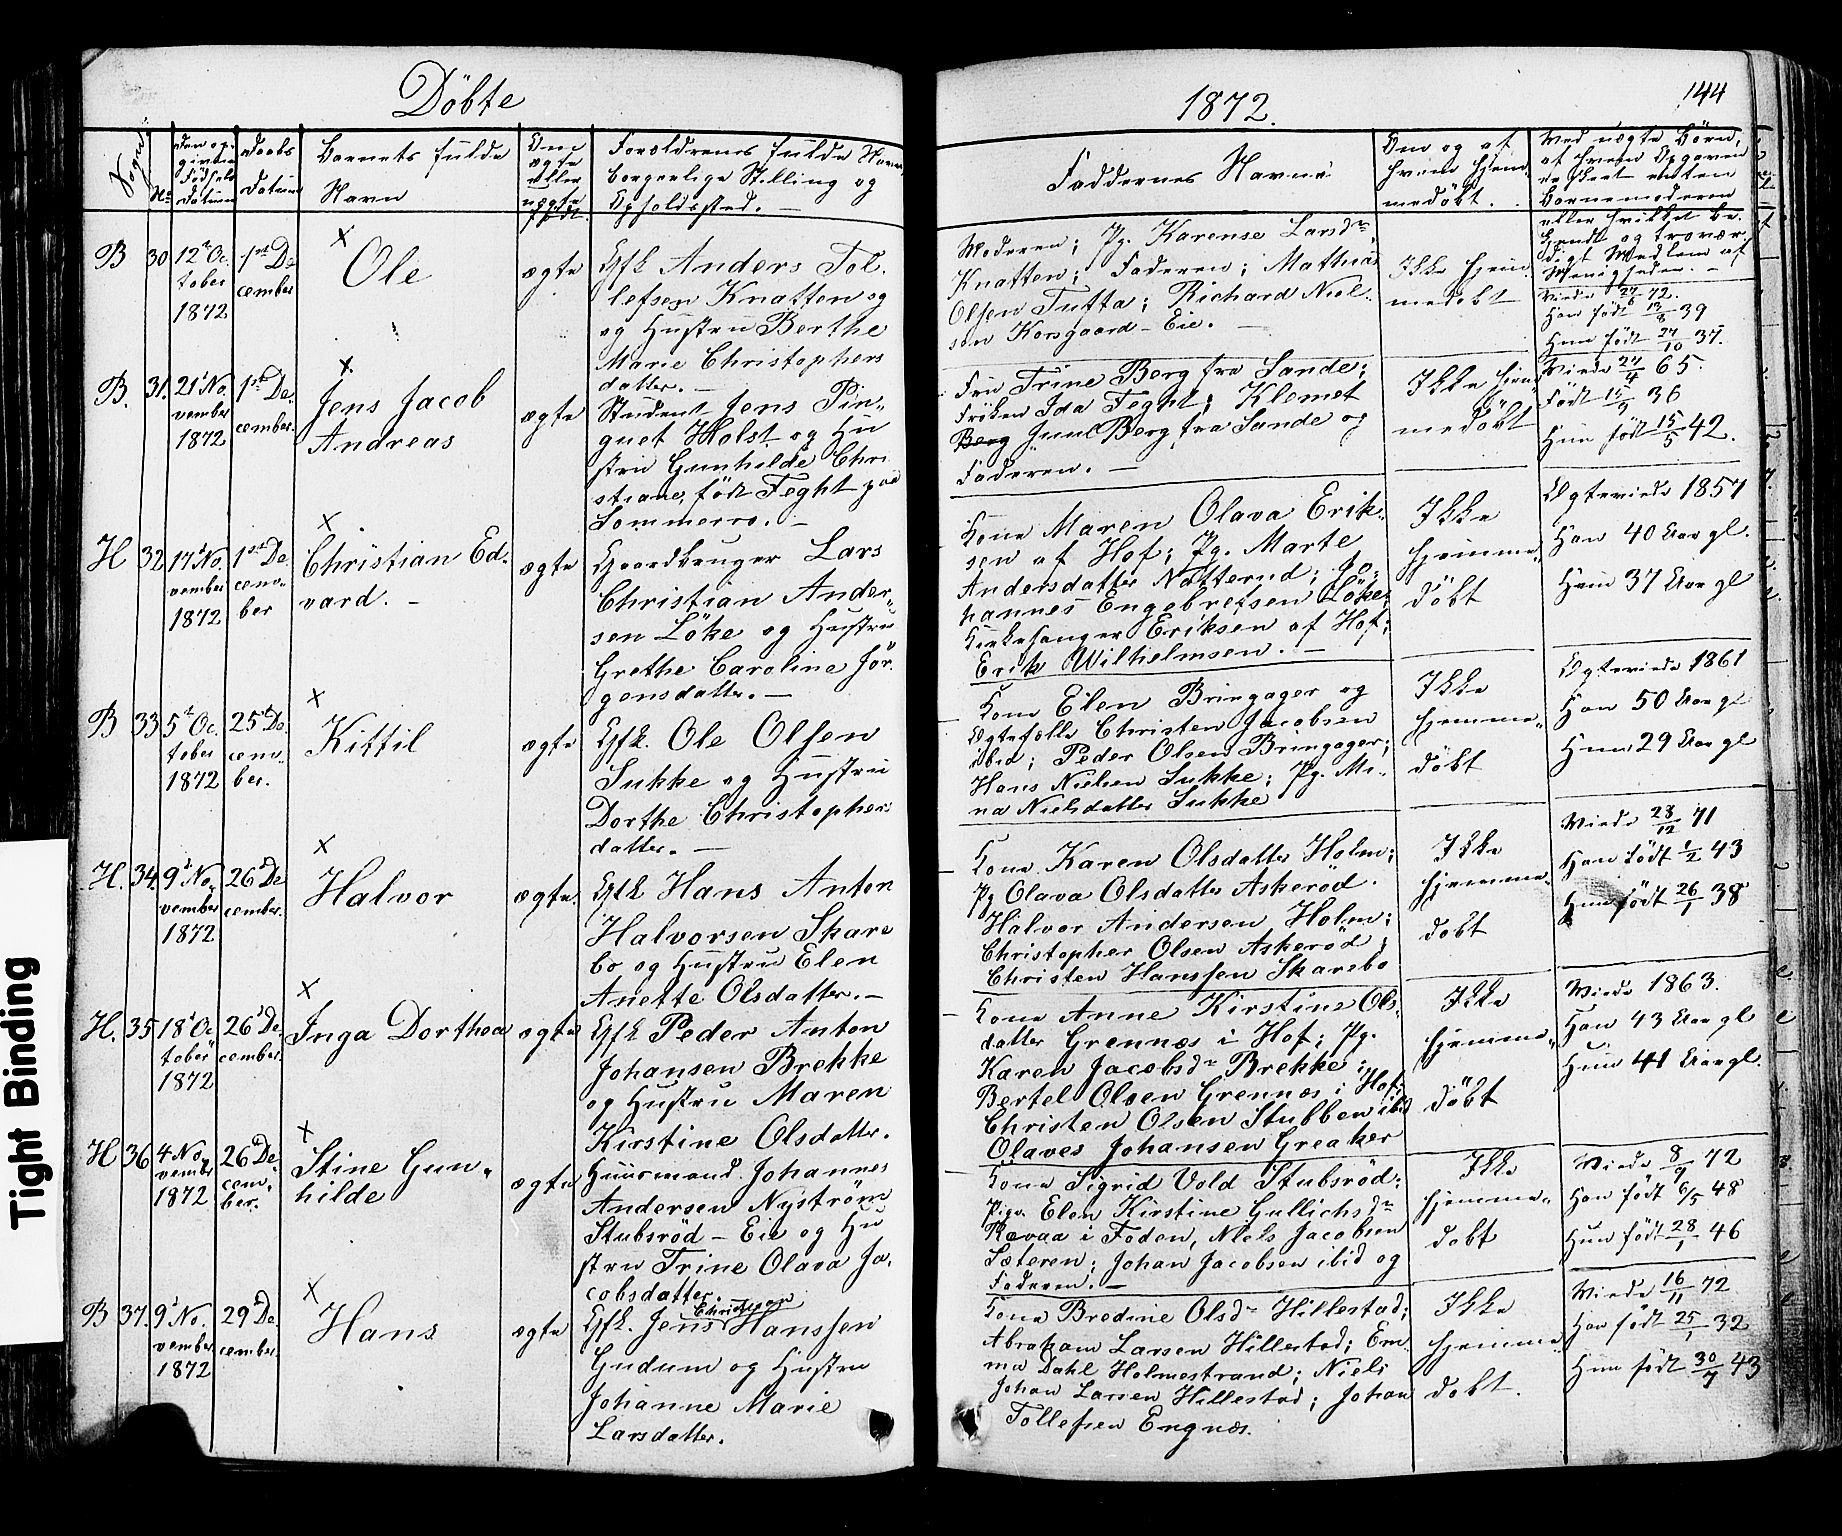 Döbte
1872.
144
Sogn
No
Den op-
givne
Födsels
Datum
Daabs
Datum
Barnets fulde
Navn
Om
ægte
eller
uægte
födt.
Forældrenes fulde Navn
borgerlige Stilling og
Opholdssted. –
Faddernes Navne
Om og af
hvem hjem-
medöbt.
Ved uægte Börn,
af hvem Opgaven
er skeet enten
Barnemoderen
eller hvilket be-
kjendt og trovær-
digt Medlem af
Menigheden. –
B
30
12te Oc.
tober
1872
1ste De
cember
Ole
ægte
Gfk Anders Tol.
lefsen Knatten og
og Hustru Berthe
Marie Christophers
datter. –
Moderen; Pg. Karense Larsdr
Knatten; Faderen; Mathias
Olsen Tufta; Richard Niel-
sen Korsgaard-Eie. –
Ikke hjem
medöbt
Viede 27/6 72.
Han født 13/8 39
Hun født 27/10 37.
B.
31.
21de No
vember
1872
1ste De.
cember.
Jens Jacob
Andreas
ægte
Student Jens Pin-
guet Holst og Hu
stru Gunhilde Chri
stiane, født Feght paa
Sommerro. –
Fru Trine Berg fra Sande;
Fröken Ida Feght; Klemet
Berg Juul Berg fra Sande og
Faderen. –
Ikke hjem
medöbt
Viede 24/4 65.
Födt 15/9 36
Hun født 15/5 42.
H
32
17de No
vember
1872
1ste De
cem-
ber
Christian Ed-
vard. –
ægte
Gaardbruger Lars
Christian Ander-
sen Löke og Hustru
Grethe Caroline Jör.
gensdatter. –
Kone Maren Olava Erik-
sen af Hof; Pg. Marte
Andersdatter Nötterud; Jo-
hannes Engebretsen Löke;
Kirkesanger Eriksen af Hof;
Erik Wilhelmsen. –
Ikke
hjemme-
döbt
Ægteviede 1857
Han 40 Aar gl.
Hun 37 Aar gl
B
33
5te Oc.
tober
1872
25de De
cem-
ber.
Kittil
ægte
Gfk. Ole Olsen
Sukke og Hustru
Dorthe Christophers
datter. –
Kone Elen Bringager og
Ægtefælle Christen Jacobsen
ibid; Peder Olsen Bringager;
Hans Nielsen Sukke; Pg. Mi-
na Nielsdatter Sukke
Ikke
hjemme-
döbt
Ægteviede 1861
Han 50 Aar gl
Hun 29 Aar gl
H.
34.
9de No.
vember
1872
26de De
cember.
Halvor
ægte.
Gfk Hans Anton
Halvorsen Skare
bo og Hustru Elen
Anette Olsdatter. –
Kone Karen Olsdatter Holm;
Pg Olava Olsdatter Askeröd.
Halvor Andersen Holm;
Christopher Olsen Askeröd;
Christen Hanssen Skarebo
Ikke
hjemme-
döbt
Viede 28/12 71
Han født 1/2 43
Hun født 26/1 38
H.
35
18de Oc
tober
1872
26de De.
cember.
Inga Dorthea
ægte
Gfk Peder Anton
Johansen Brekke
og Hustru Maren
Kirstine Olsdatter.
Kone Anne Kirstine Ols-
datter Grennes i Hof; Pg.
Karen Jacobsdr Brekke;
Bertel Olsen Grennes i Hof;
Christen Olsen Stubben ibid
Olaves Johansen Greaker
Ikke
hjemme-
döbt
Viede 1863.
Han 43 Aar gl
Hun 41 Aar gl.
H
36
4 No
vember
1872
26de De.
cem-
ber.
Stine Gun-
hilde
ægte
Huusmand Johannes
Andersen Nyström
Stubsröd-Eie og Hu
stru Trine Olava Ja.
cobsdatter.
Kone Sigrid Vold Stubsröd;
Pige Elen Kirstine Gullichsdr
Rævaa i Foden, Niels Jacobsen
Sæteren; Johan Jacobsen ibid og
Faderen. –
Ikke
hjemme-
döbt
Viede 8/9 72
Han født 6/5 48
Hun født 28/1 46
B
37.
9de No.
vember
1872
29de De.
cember.
Hans
ægte
Christian
Gfk. Jens Hanssen
Gudum og Hustru
Johanne Marie
Larsdatter.
Kone Bredine Olsdr Hillestad;
Abraham Larsen Hillestad; Em
ma Dahl Holmestrand; Niels
Johan Larsen Hillestad; Johan
Tollefsen Engnæs.
Ikke
hjemme-
döbt.
Viede 16/11 72
Han født 25/1 32
Hun født 30/7 43
Tight Binding